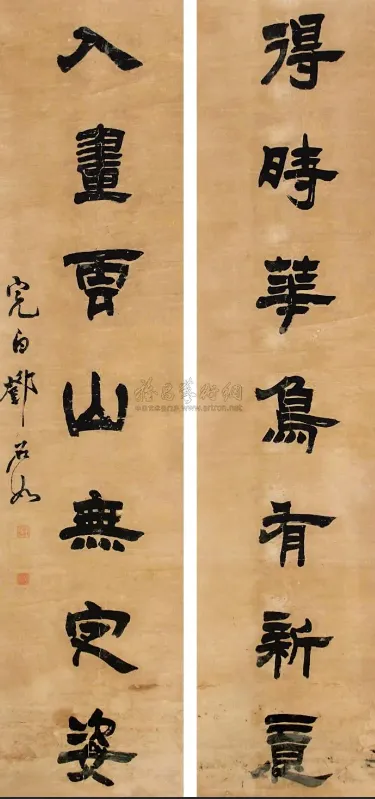 得時華鳥有新意
入畫雲山無定姿
完白鄧石如
雅昌藝術網